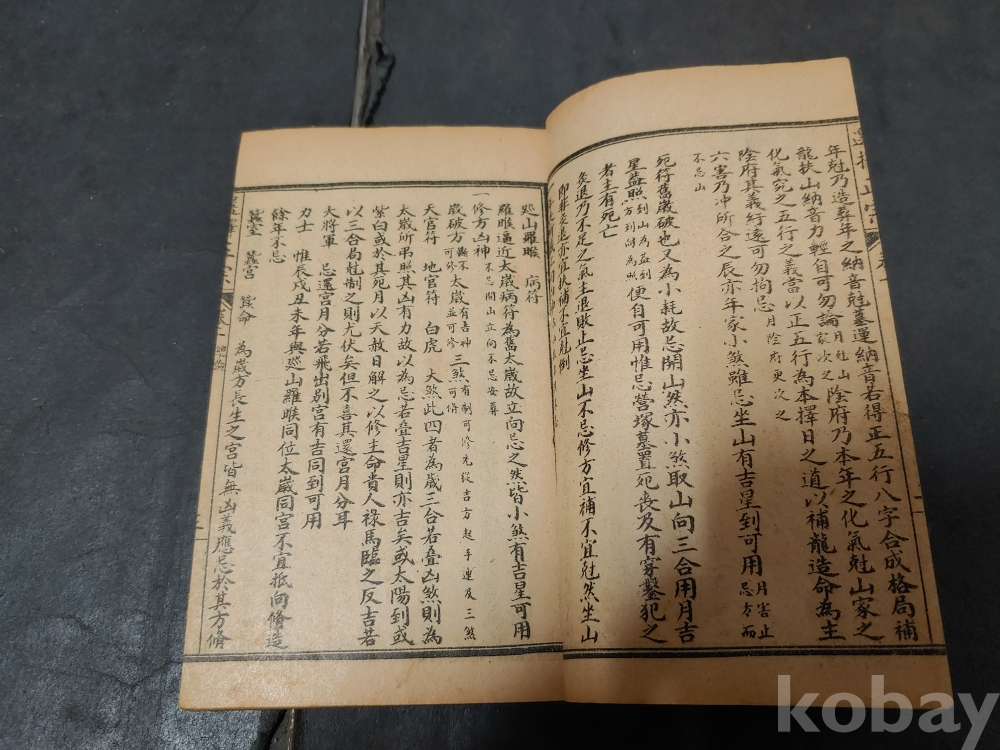 年尅乃造葬年之納音尅墓運納音若得正五行八字合成格局補
龍扶山納音力輕自可勿論月尅山家次之陰府乃本年之化氣尅山家之
化氣究之五行之義當以正五行為本擇日之道以補龍造命為主
陰府其義紆遠可勿拘忌月陰府更次之
六害乃冲所合之辰亦年家小煞雖忌坐山有吉星到可用月害止忌方而
不忌山
死符舊歲破也又為小耗故忌開山然亦小煞取山向三合用月吉
星蓋照到山為蓋到方到向為照便自可用惟忌營塚墓置死喪及有穿鑿犯之
者主有死亡
灸退乃不足之氣主退敗止忌坐山不忌修方宜補不宜尅然坐山
即非灸退亦宜扶補不宜尅倒
巡山羅睺 病符
羅睺逼近太歲病符為舊太歲故立向忌之然皆小煞有吉星可用
一修方凶神不忌開山立向不忌安葬
歲破方斷不可修太歲有吉神並可修三煞有制可修先從吉方起手連及三煞可修
天官符 地官符 白虎 大煞此四者為歲三合若叠凶煞則為
太歲所弔照其凶有力故以為忌若叠吉星則亦吉矣或太陽到或
紫白或於其死月以天赦日解之以修主命貴人祿馬臨之反吉若
以三合局尅制之則尤伏矣但不喜其還宮月分耳
大將軍 忌還宮月分若飛出别宮有吉同到可用
力士 惟辰戌丑未年與巡山羅睺同位太歲同宮不宜抵向修造
餘年不忌
蚕室 蚕宮 蚕命 為歲方長生之宮皆無凶義應忌於其方修
kobay